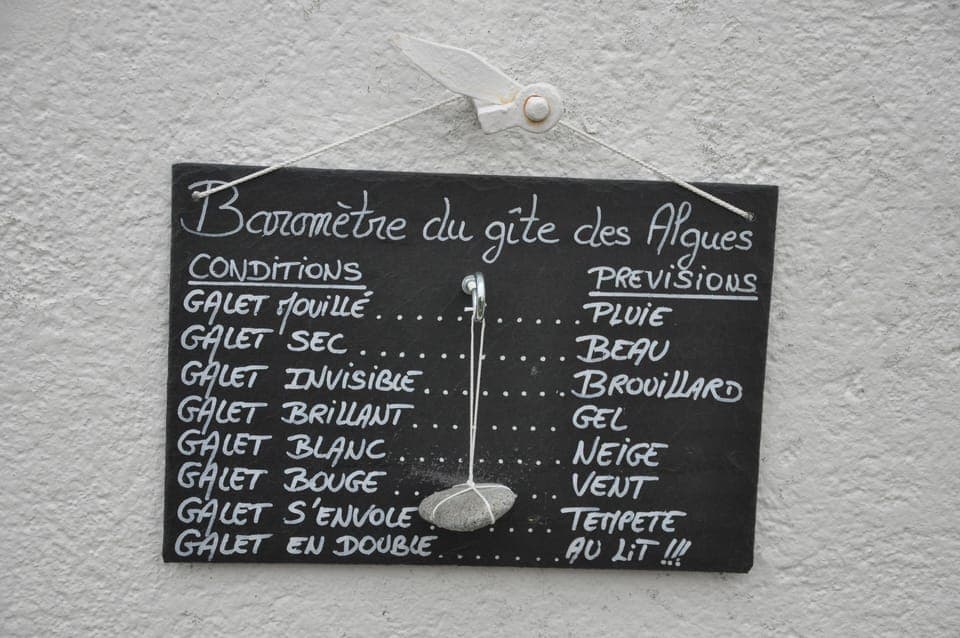 Baromètre du gîte des Algues
CONDITIONS PREVISIONS
GALET MOUILLÉ.................PLUIE
GALET SEC.................BEAU
GALET INVISIBLE.............BROUILLARD
GALET BRILLANT.............GEL
GALET BLANC.............NEIGE
GALET BOUGE.............VENT
GALET S'ENVOLE.............TEMPETE
GALET EN DOUBLE.............AU LIT !!!